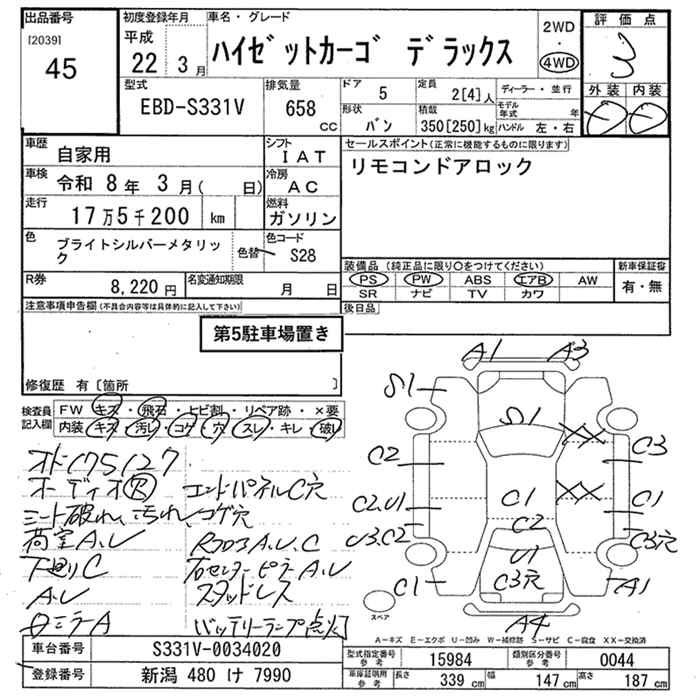 出品番号
[2039]
45
初度登録年月
平成
22 3月
車名・グレード
ハイゼットカーゴ デラックス
2WD
・
4WD
評価点
3
型式
EBD-S331V
排気量
658 cc
ドア
5
定員
2[4]人
ディーラー・並行
形状
バン
積載
350[250]kg
モデル年式 年
ハンドル 左・右
外装 内装
D D
車歴
自家用
シフト
IAT
セールスポイント(正常に機能するものに限ります)
リモコンドアロック
車検
令和 8年 3月( 日)
冷房
AC
走行
17万5千200 km
燃料
ガソリン
色
ブライトシルバーメタリック
色替
色コード
S28
装備品(純正品に限り○をつけてください)
新車保証書
PS PW ABS エアB AW
SR ナビ TV カワ
有・無
R券
8,220円
名変通知期限
月 日
後日品
注意事項申告欄(不具合内容等は具体的に記入して下さい)
第5駐車場置き
修復歴 有〔箇所 〕
検査員記入欄
FW キズ・飛石・ヒビ割・リペア跡・×要
内装 キズ・汚レ・コゲ・穴・スレ・キレ・破レ
オド175127
オーディオ欠 エンドパネルC穴
シート破れ、汚れ、コゲ穴
荷室A.U
下廻りC
A.U スタッドレス
ミラーA バッテリーランプ点灯
A1 A3
S1
S1
XX
C2 C3
XX
C2.U1 C1 C1
U3.C2 C2 C3穴
U1
C1 C3穴 A1
A4
スペア
A-キズ E-エクボ U-凹み W-補修跡 S-サビ C-腐食 XX-交換済
車台番号
S331V-0034020
登録番号
新潟 480 け 7990
型式指定番号 参考
15984
類別区分番号 参考
0044
車庫証明用 参考
長さ 339 cm 幅 147 cm 高さ 187 cm